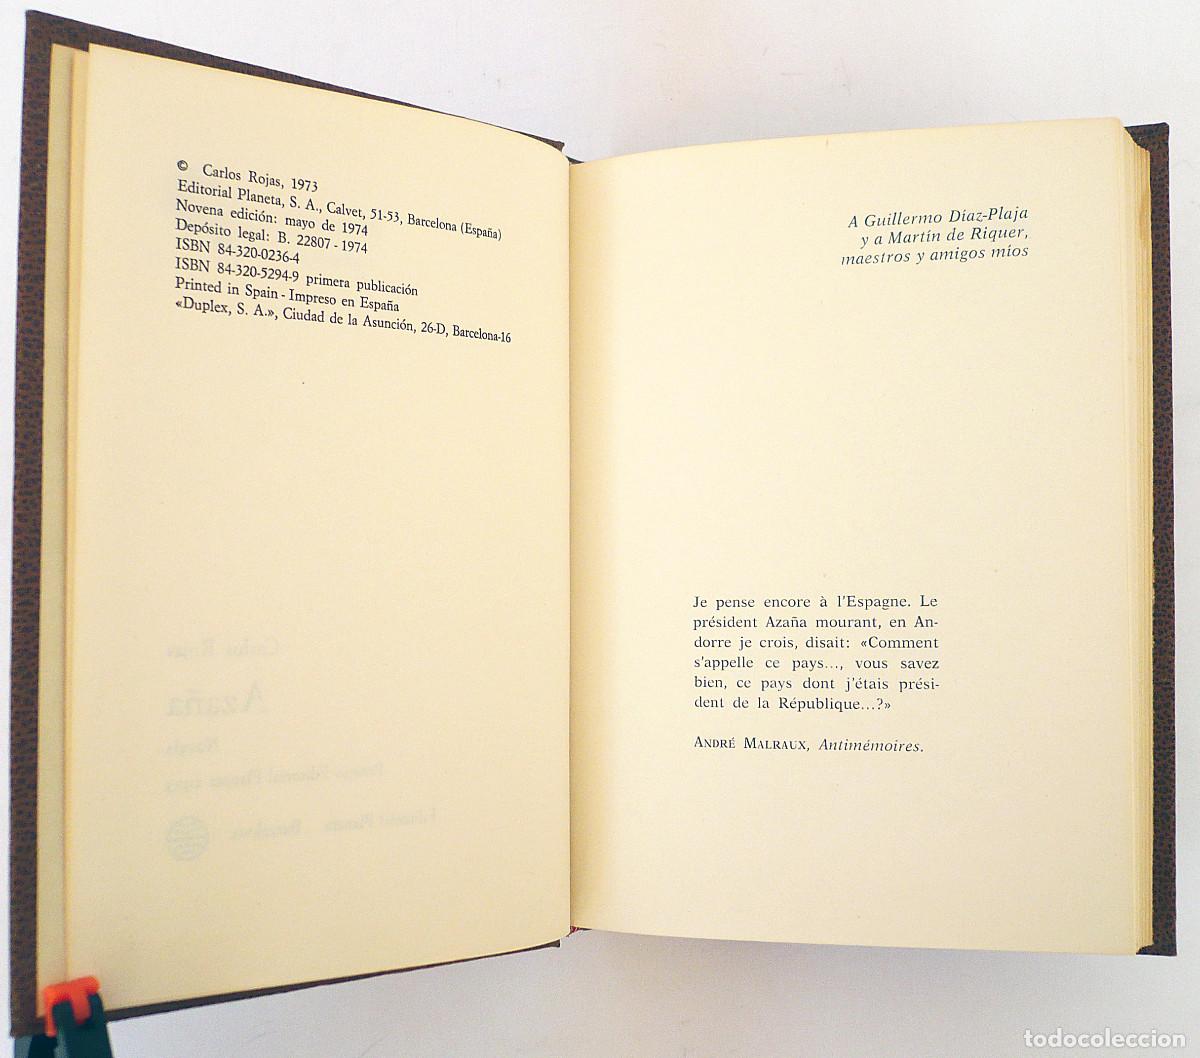 © Carlos Rojas, 1973
Editorial Planeta, S. A., Calvet, 51-53, Barcelona (España)
Novena edición: mayo de 1974
Depósito legal: B. 22807 - 1974
ISBN 84-320-0236-4
ISBN 84-320-5294-9 primera publicación
Printed in Spain - Impreso en España
«Duplex, S. A.», Ciudad de la Asunción, 26-D, Barcelona-16
Carlos Rojas
Azaña
Novela
Premio Editorial Planeta 1973
Editorial Planeta Barcelona
A Guillermo Díaz-Plaja
y a Martín de Riquer,
maestros y amigos míos
Je pense encore à l'Espagne. Le
président Azaña mourant, en An-
dorre je crois, disait: «Comment
s'appelle ce pays..., vous savez
bien, ce pays dont j'étais prési-
dent de la République...?»
ANDRÉ MALRAUX, Antimémoires.
todocoleccion